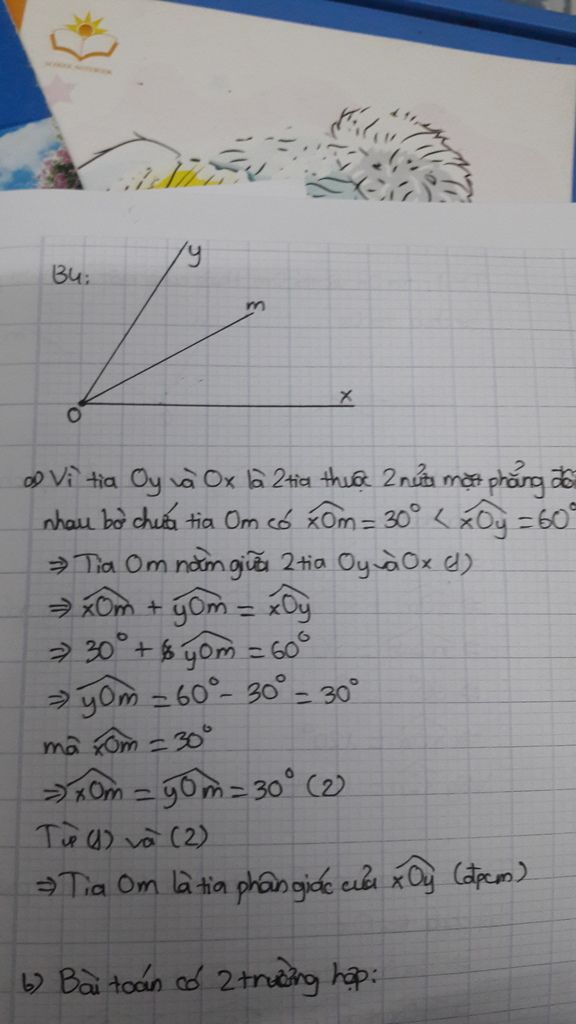 B4:
y
m
x
O
a) Vì tia Oy và Ox là 2 tia thuộc 2 nửa mặt phẳng đối
nhau bờ chứa tia Om có xOm = 30° < xOy = 60°
⇒ Tia Om nằm giữa 2 tia Oy và Ox (1)
⇒ xOm + yOm = xOy
⇒ 30° + yOm = 60°
⇒ yOm = 60° - 30° = 30°
mà xOm = 30°
⇒ xOm = yOm = 30° (2)
Từ (1) và (2)
⇒ Tia Om là tia phân giác của xOy (đpcm)
b) Bài toán có 2 trường hợp: